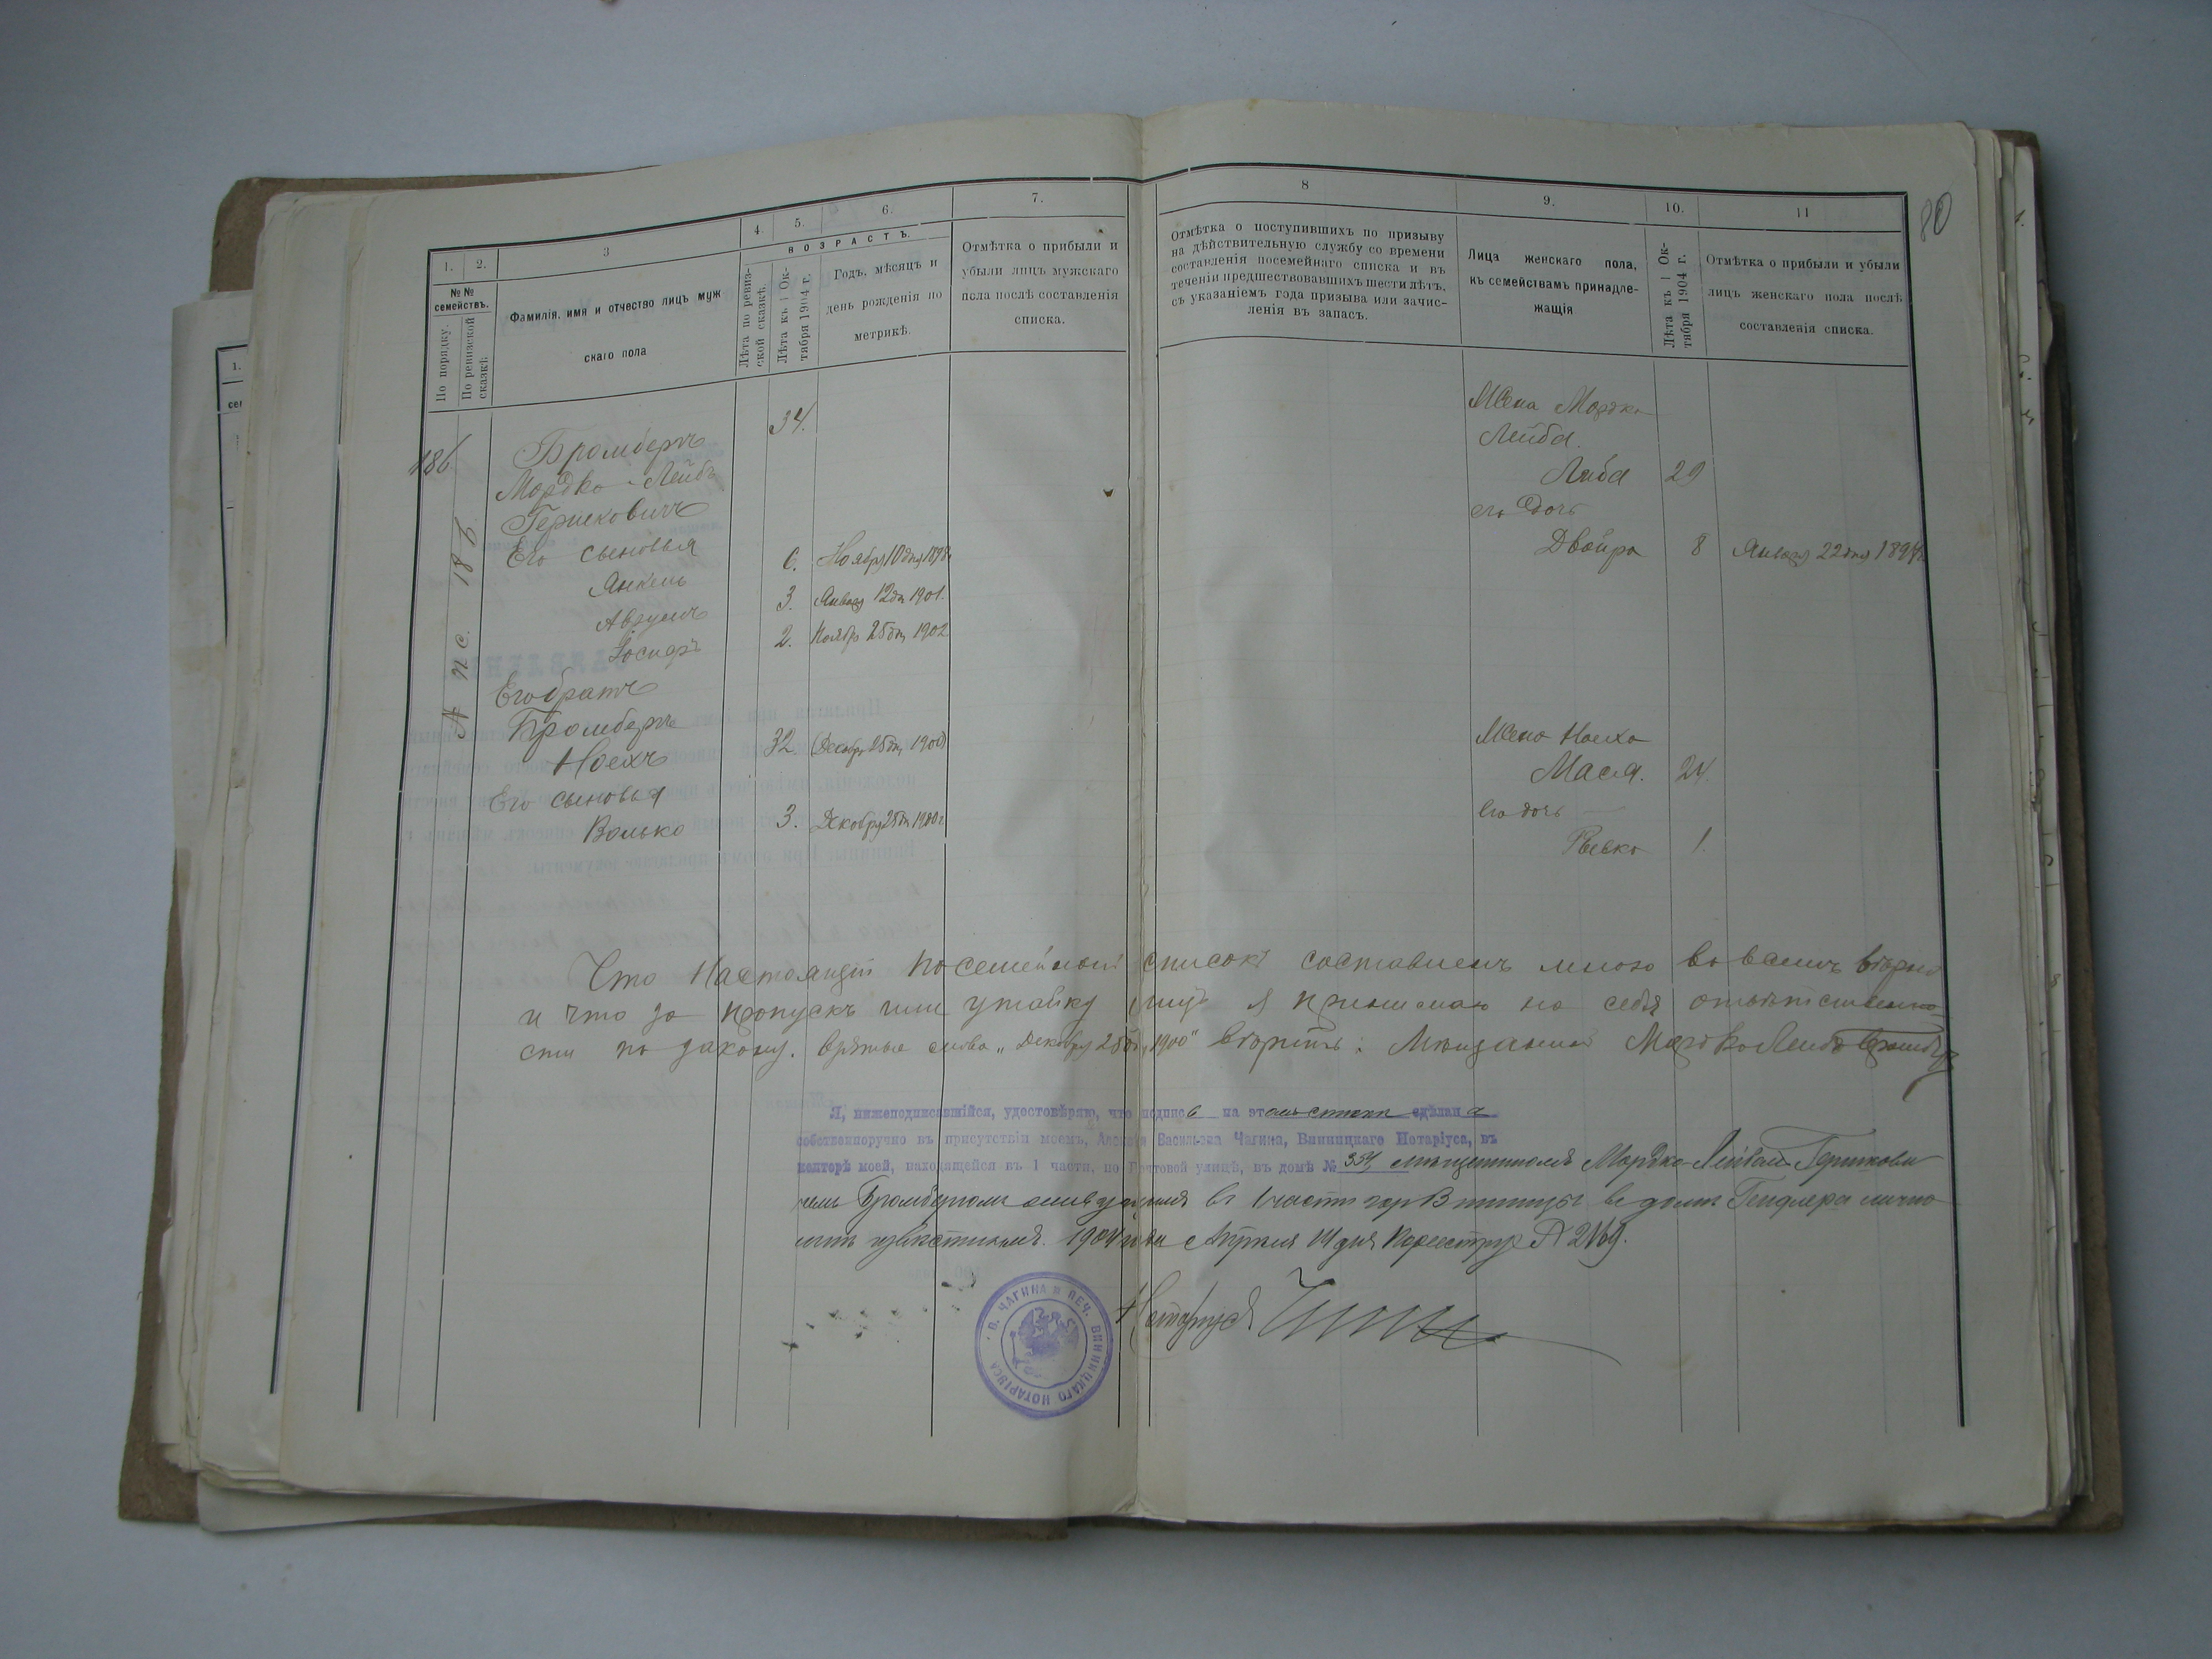 80
1.
2.
3
4.
5.
6.
7.
8
9.
10.
11
№№ семействъ.
По порядку.
По ревизской сказкѣ.
Фамилія, имя и отчество лицъ муж
скаго пола
ВОЗРАСТЪ.
Лѣта по ревиз-
ской сказкѣ.
Лѣта къ 1 Ок-
тября 1904 г.
Годъ, мѣсяцъ и
день рожденія по
метрикѣ.
Отмѣтка о прибыли и
убыли лицъ мужскаго
пола послѣ составленія
списка.
Отмѣтка о поступившихъ по призыву
на дѣйствительную службу со времени
составленія посемейнаго списка и въ
теченіи предшествовавшихъ шести лѣтъ,
съ указаніемъ года призыва или зачис-
ленія въ запасъ.
Лица женскаго пола,
къ семействамъ принадле-
жащія
Лѣта къ 1 Ок-
тября 1904 г.
Отмѣтка о прибыли и убыли
лицъ женскаго пола послѣ
составленія списка.
186
№ пс. 186
Бромбергъ 34.
Мордко-Лейбъ
Гершковичъ
Его сыновья
Янкель 6. Ноября 10 дня 1898
Аврумъ 3. Января 12 дн 1901.
Іосифъ 2. Ноябр 25 дн 1902
Его братъ
Бромбергъ
Ноехъ 32. (Декабр 25 дн 1900)
Его сыновья
Волько 3. Декабря 25 дн 1900 г.
Жена Мордка
Лейба.
Либа 29
его дочь
Двойра 8 Января 22 дня 189
Жена Ноеха
Мася. 24.
его дочь
Рывка 1.
Что настоящій посемейный списокъ составленъ мною во всемъ вѣрно
и что за пропускъ или утайку лицъ я принимаю на себя отвѣтственно-
сти по закону. слова „Декабря 25 дн 1900" вѣрить: Мѣщанинъ Мордко Лейбъ Бромбергъ
Я, нижеподписавшійся, удостовѣряю, что подпись на этомъ спискѣ сдѣлана
собственноручно въ присутствіи моемъ, Алексѣя Васильева Чагина, Винницкаго Нотаріуса, въ
конторѣ моей, находящейся въ 1 части, по Почтовой улицѣ, въ домѣ № 354, мѣщаниномъ Мордко-Лейбомъ Гершкови
чемъ Бромбергомъ живущимъ въ 1 части гор Винницы въ домѣ Гендлера лично
мнѣ извѣстнымъ. 1904 года Апрѣля 14 дня По реестру № 2169.
Нотаріусъ
В. ЧАГИНА * ПЕЧ. ВИННИЦКАГО НОТАРІУСА